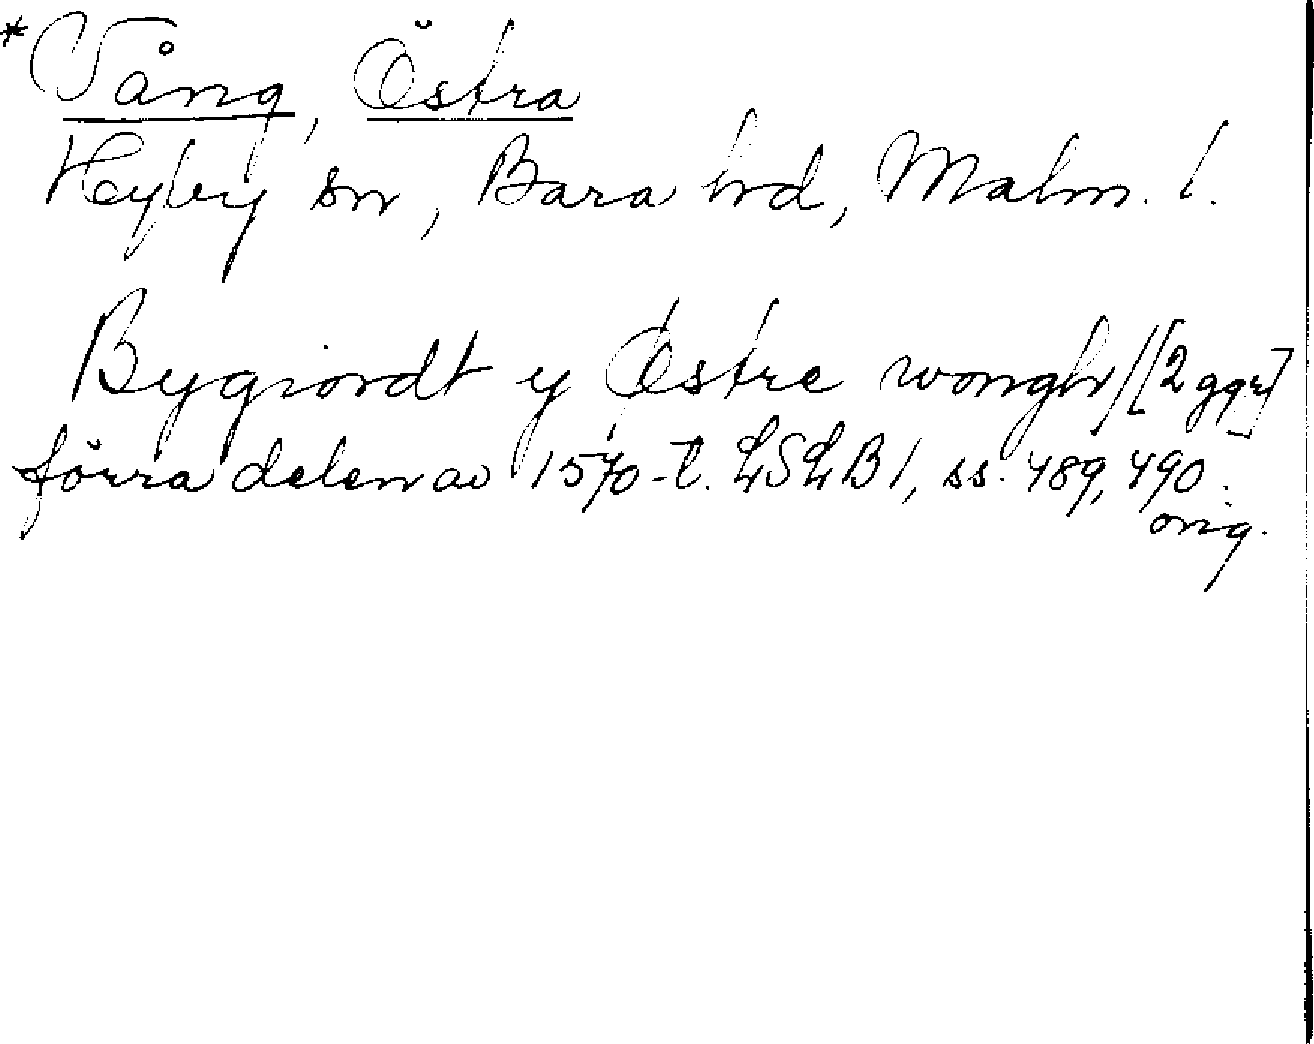 *Vång, Östra
Hyby sn, Bara hd, Malm. l.
Bygiordt y Østre wongh/[2 ggr]
förra delen av 1570-t. LSLB 1, ss. 489, 490.
orig.